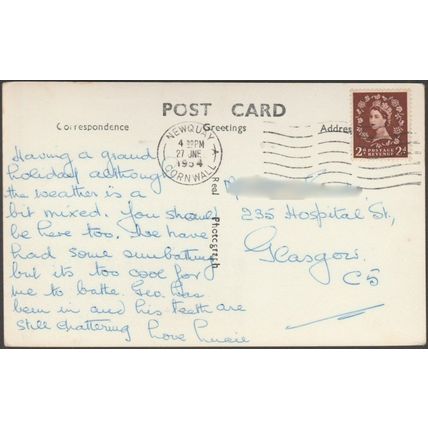 POST CARD
Correspondence
Greetings
Address
NEWQUAY
4 PM
27 JNE
1954
CORNWALL
2D POSTAGE REVENUE 2D
Real Photograph
Having a grand
holiday although
the weather is a
bit mixed. You should
be here too. We have
had some sunbathing
but its too cool for
me to bathe. Geo. has
been in and his teeth are
still chattering Love
235 Hospital St.,
Glasgow.
C5